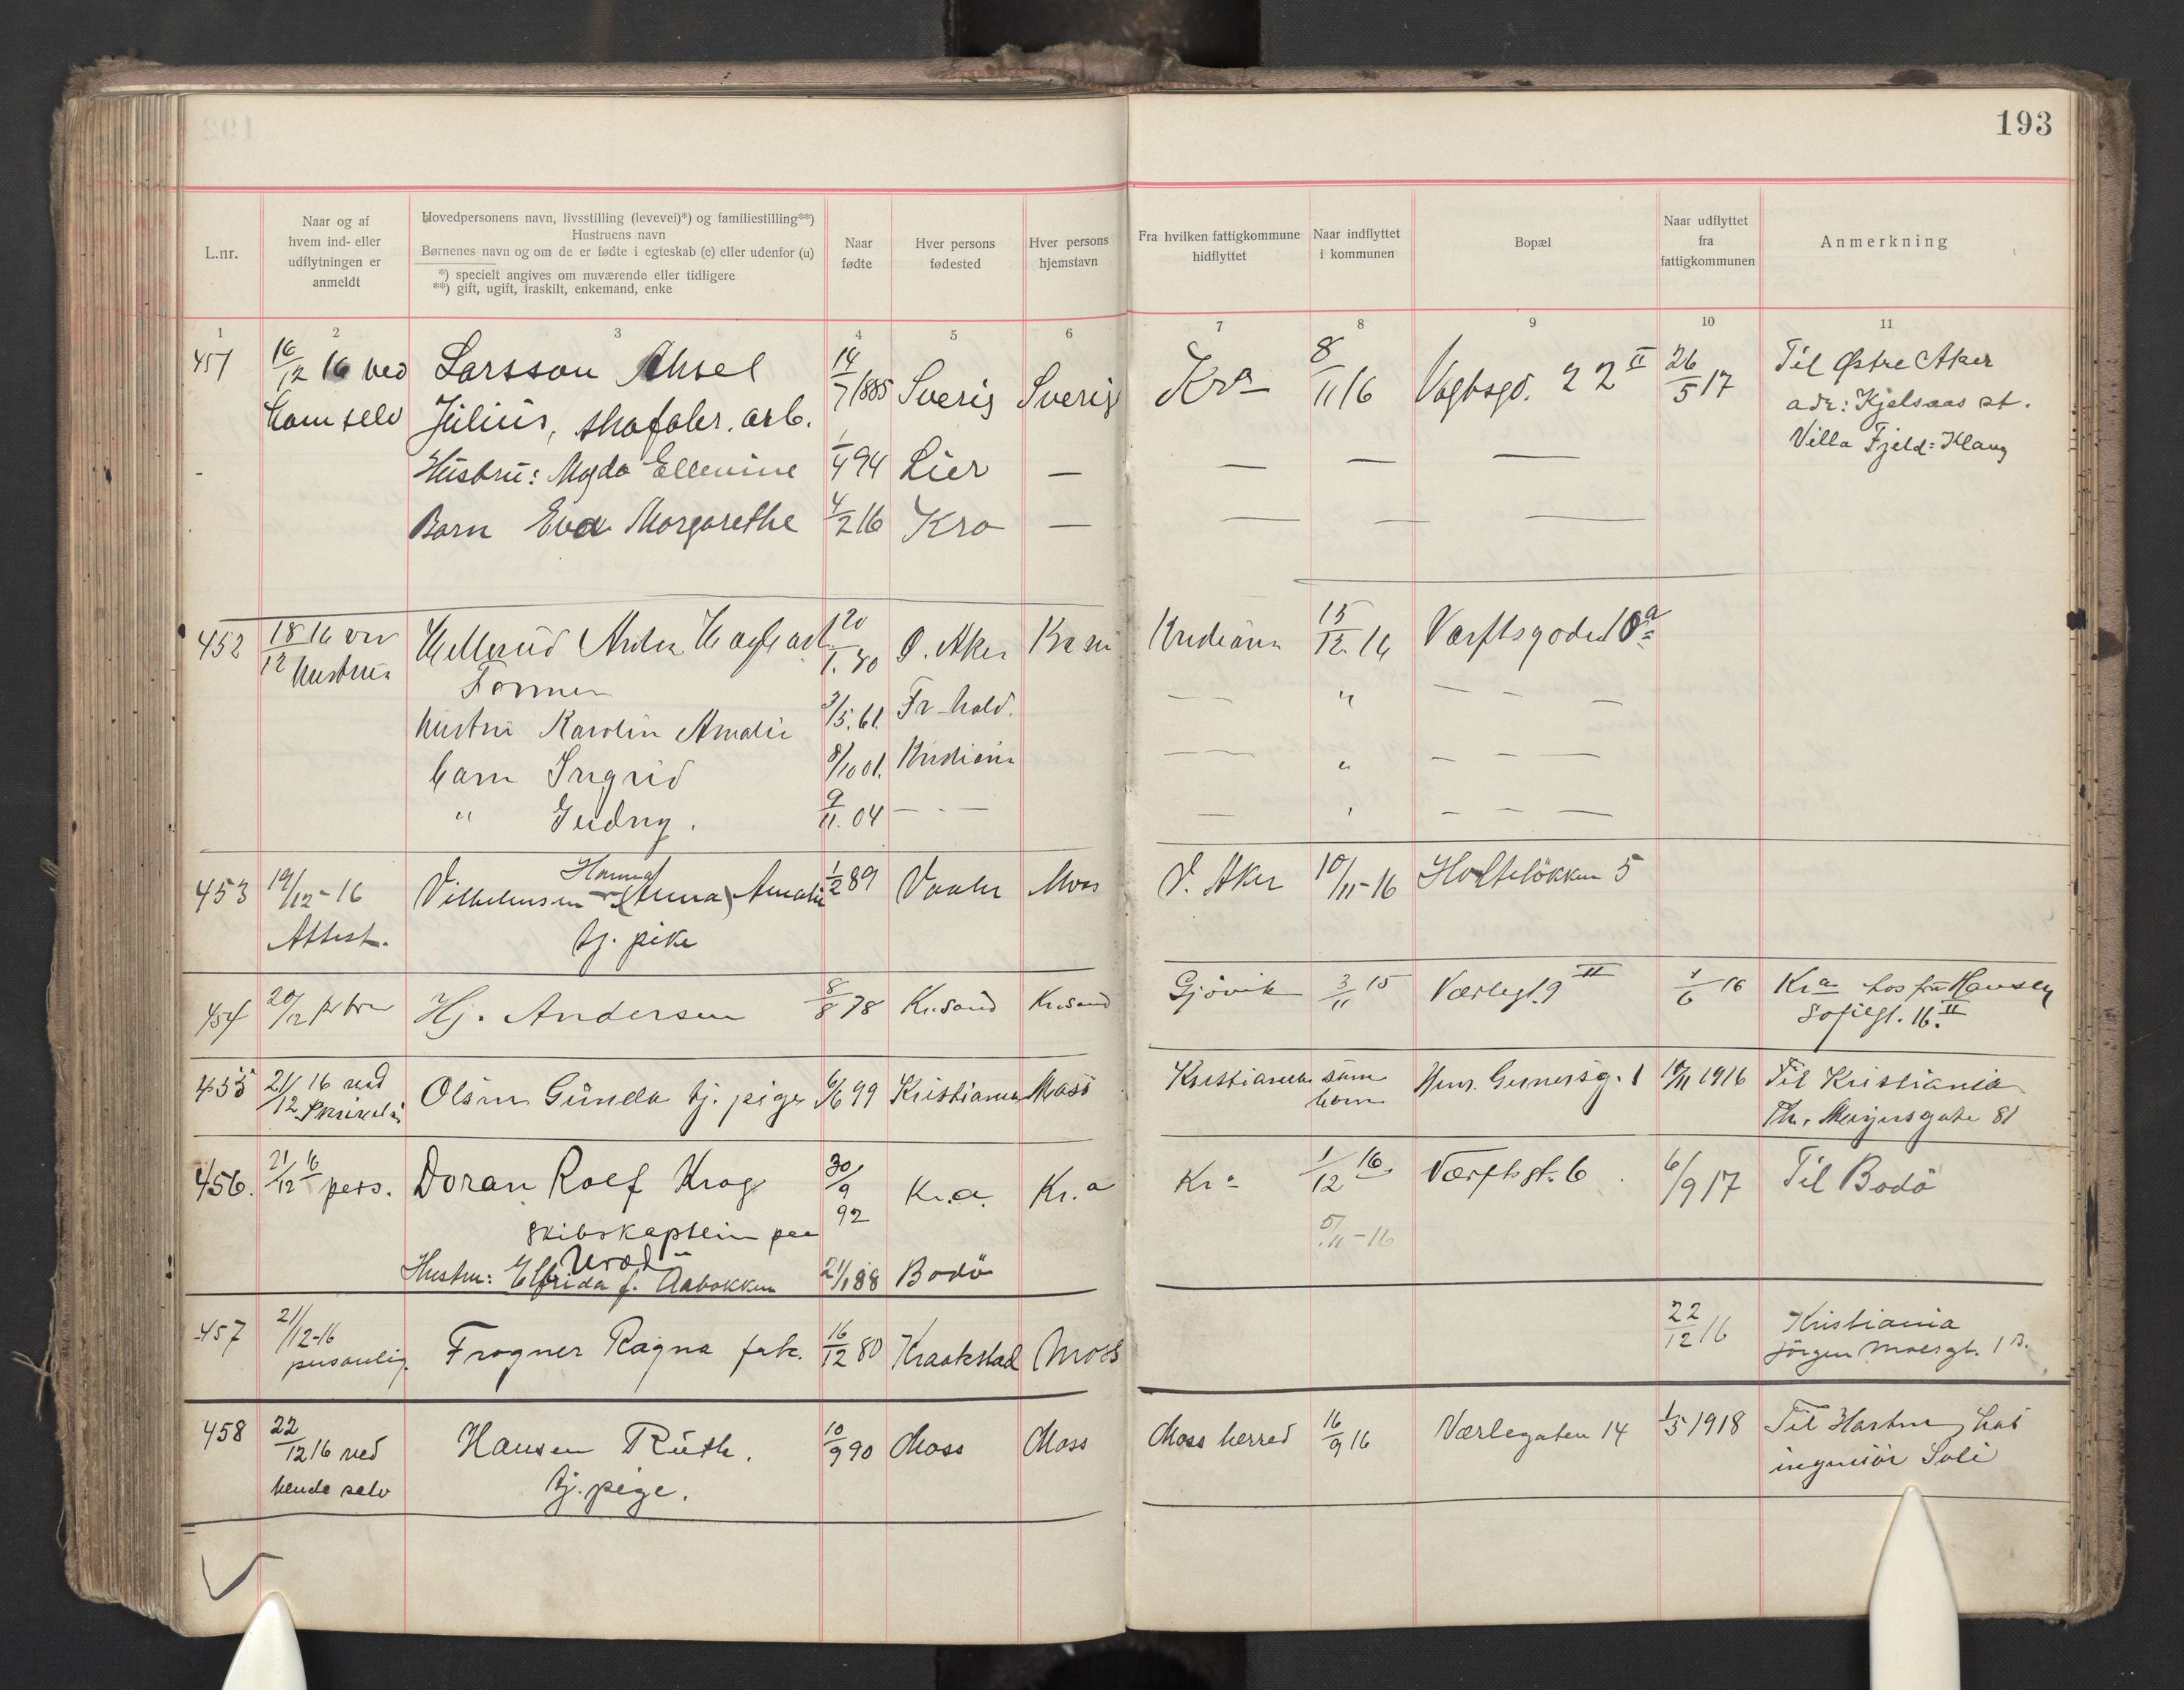 193
L.nr.
Naar og af hvem ind- eller udflytningen er anmeldt
Hovedpersonens navn, livsstilling (levevei)*) og familiestilling**)
Hustruens navn
Børnenes navn og om de er fødte i egteskab (e) eller udenfor (u)
*) specielt angives om nuværende eller tidligere
**) gift, ugift, fraskilt, enkemand, enke
Naar fødte
Hver persons fødested
Hver persons hjemstavn
Fra hvilken fattigkommune hidflyttet
Naar indflyttet i kommunen
Bopæl
Naar udflyttet fra fattigkommunen
Anmerkning
1 2 3 4 5 6 7 8 9 10 11
451 16/12 16 ved Larsson Aksel 14/7 1885 Sverig Sverig Kra 8/11 16 Vogtsgd. 22 II 26/5 17 Til Østre Aker
ham selv Julius, skofabr. arb. adr: Kjelsaas st.
Hustru: Magda Ellenine 1/4 94 Lier — — — — Villa Fjeld-Klang
Barn Eva Margarethe 4/2 16 Kra — — — —
452 18/12 16 ved 20/1. 80 Ø. Aker Kristiania 15/12 16 Værftsgaden 10a
Hustruen Formen
Hustru Karolin Amalie 3/5. 61. Fr.hald. — " — — —
barn Ingrid 8/10 01. Kristiania — " — — —
" Gudny. 9/11. 04 — - — — — — —
Hanna
453 19/12-16 Vilhelmsen (Anna) Amalie 1/2 89 Vaaler Moss V. Aker 10/11-16 Holteløkken 5
Attest. tj. pike
454 20/12 pr brev Hj. Andersen 8/8 78 Kr.sand Kr.sand Gjøvik 3/11 15 Værlegt. 9 II 1/6 16 Kra hos fru Hansen
Sofiegt. 16. II
455 21/12 16 ved Olsen Gunda tj. pige 6/6 99 Kristiania Moss Kristiania som barn Henr. Gernersg. 1 10/11 1916 Til Kristiania
Th. Meyersgate 81
456. 21/12 16 pers. Doran Rolf Krog 30/9 92 Kr.a. Kr.a Kra 1/12 16. Værftsgt. 6 6/9 17 Til Bodø
skibskaptein paa 5/11-16
Urædd
Hustru: Elfrida f. Aabakken 21/1 88 Bodø
457 21/12-16 Frogner Ragna frk. 16/12 80 Kraakstad Moss 22/12 16 Kristiania
personlig. Jørgen Moesgt. 1 B.
458 22/12 16 ved Hansen Ruth. 10/9 90 Moss Moss Moss herred 16/9 16 Værlegaten 14 1/5 1918 Til Horten, hos
hende selv tj. pige. ingeniør Soli